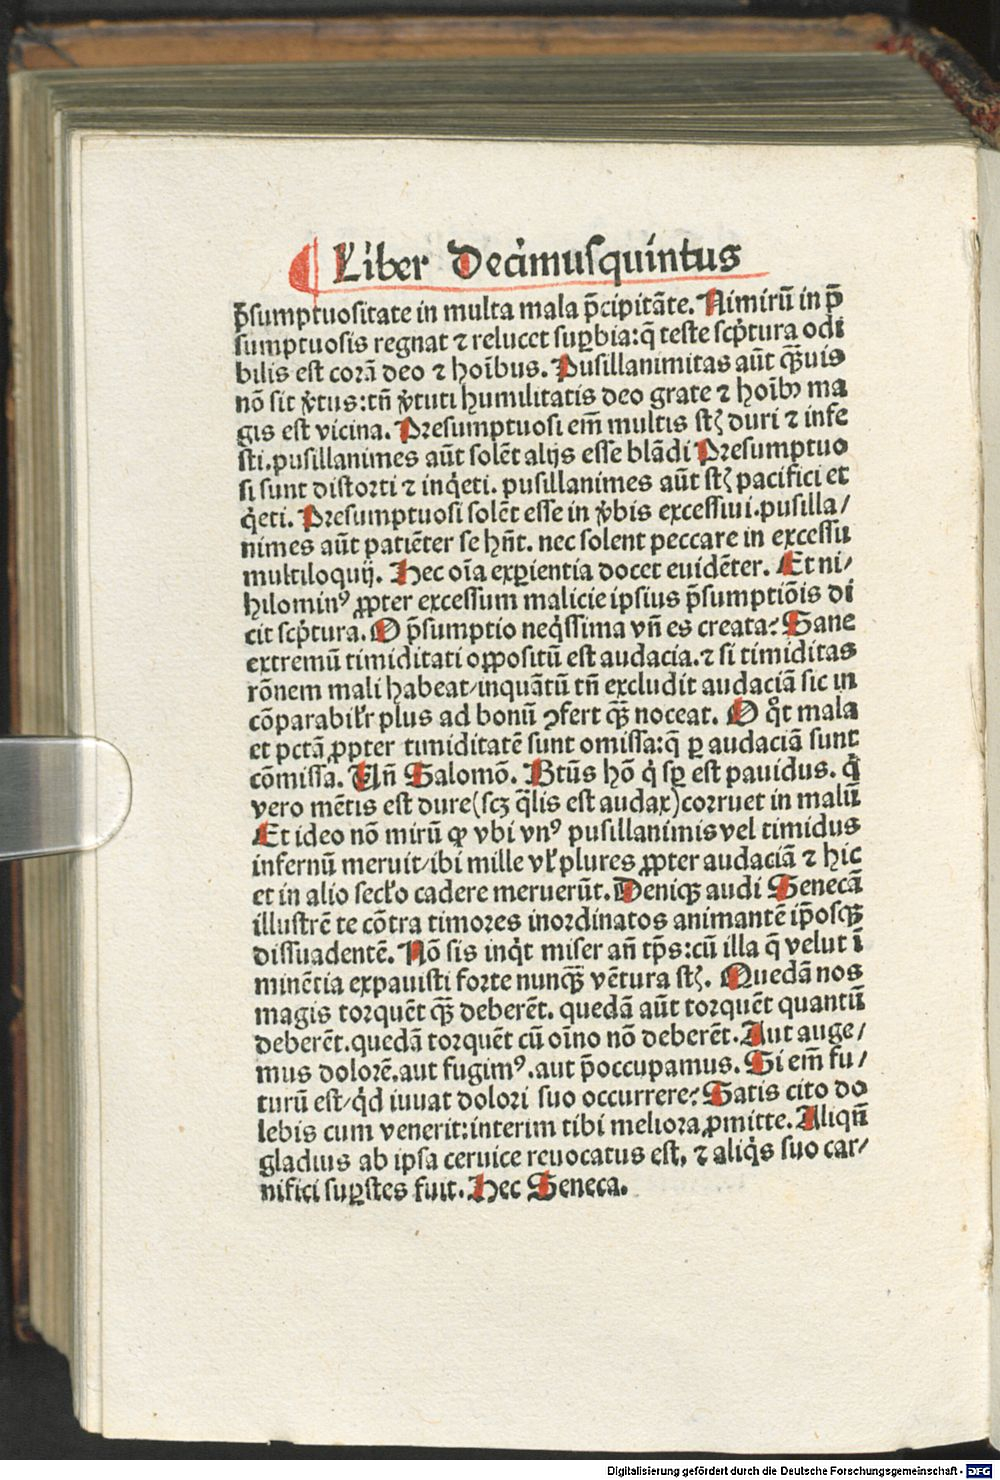 Liber Decimusquintus
p̄sumptuositate in multa mala p̄cipitāte. Nimirū in p̄
sumptuosis regnat ⁊ relucet suꝑbia: q̄ teste scp̄tura odi
bilis est corā deo ⁊ hoībus. Pusillanimitas aūt qꝫ̄uis
nō sit v̓tus: tn̄ v̓tuti humilitatis deo grate ⁊ hoībꝰ ma
gis est vicina. Presumptuosi em̄ multis stꝫ duri ⁊ infe
sti. pusillanimes aūt solēt alijs esse blādi Presumptuo
si sunt distorti ⁊ inq̓eti. pusillanimes aūt stꝫ pacifici et
q̓eti. Presumptuosi solēt esse in v̓bis excessiui. pusilla/
nimes aūt patiēter se hn̄t. nec solent peccare in excessu
multiloquij. Hec oīa exꝑientia docet euidēter. Et ni/
hilominꝰ ꝓpter excessum malicie ipsius p̄sumptiōis di
cit scp̓tura. O p̄sumptio neq̓ssima vn̄ es creata? Sane
extremū timiditati oppositū est audacia. ⁊ si timiditas
rōnem mali habeat/inquātū tn̄ excludit audaciā sic in
cōparabilr̓ plus ad bonū ꝯfert qꝫ̄ noceat. O q̊t mala
et pctā ꝓpter timiditatē sunt omissa: q̄ ꝑ audaciā sunt
cōmissa. Un̄ Salomō. Btūs hō q̓ sꝑ est pauidus. q̓
vero mētis est dure (scꝫ q̄lis est audax) corruet in malū
Et ideo nō mirū ꝙ vbi vnꝰ pusillanimis vel timidus
infernū meruit/ibi mille vl̓ plures ꝓpter audaciā ⁊ hic
et in alio secl̓o cadere meruerūt. Deniqꝫ audi Senecā
illustrē te cōtra timores inordinatos animantē ip̄osqꝫ
dissuadentē. Nō sis inq̓t miser an̄ tp̄s: cū illa q̄ velut ī
minētia expauisti forte nunqꝫ̄ vētura stꝫ. Quedā nos
magis torquēt qꝫ̄ deberēt. quedā aūt torquēt quantū
deberēt. quedā torquēt cū oīno nō deberēt. Aut auge/
mus dolorē. aut fugimꝰ. aut p̄occupamus. Si em̄ fu/
turū est/q̓d iuuat dolori suo occurrere? Satis cito do
lebis cum venerit: interim tibi meliora ꝓmitte. Aliqn̄
gladius ab ipsa ceruice reuocatus est, ⁊ aliq̓s suo car/
nifici suꝑstes fuit. Hec Seneca.
Digitalisierung gefördert durch die Deutsche Forschungsgemeinschaft - DFG